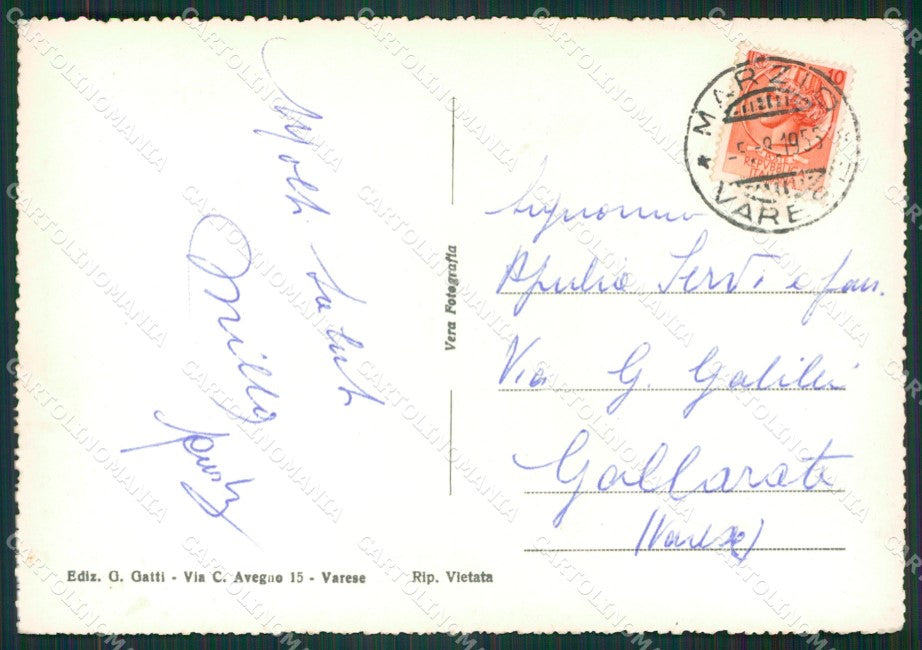 Molti saluti
Signorina
Apulia Servi e fam.
Via G. Galilei
Gallarate
(Varese)
Vera Fotografia
Ediz. G. Gatti - Via C. Avegno 15 - Varese
Rip. Vietata
MARZIO
-5-8-1955
VARESE
10
REPVBBLICA
ITALIANA
CARTOLINOMANIA